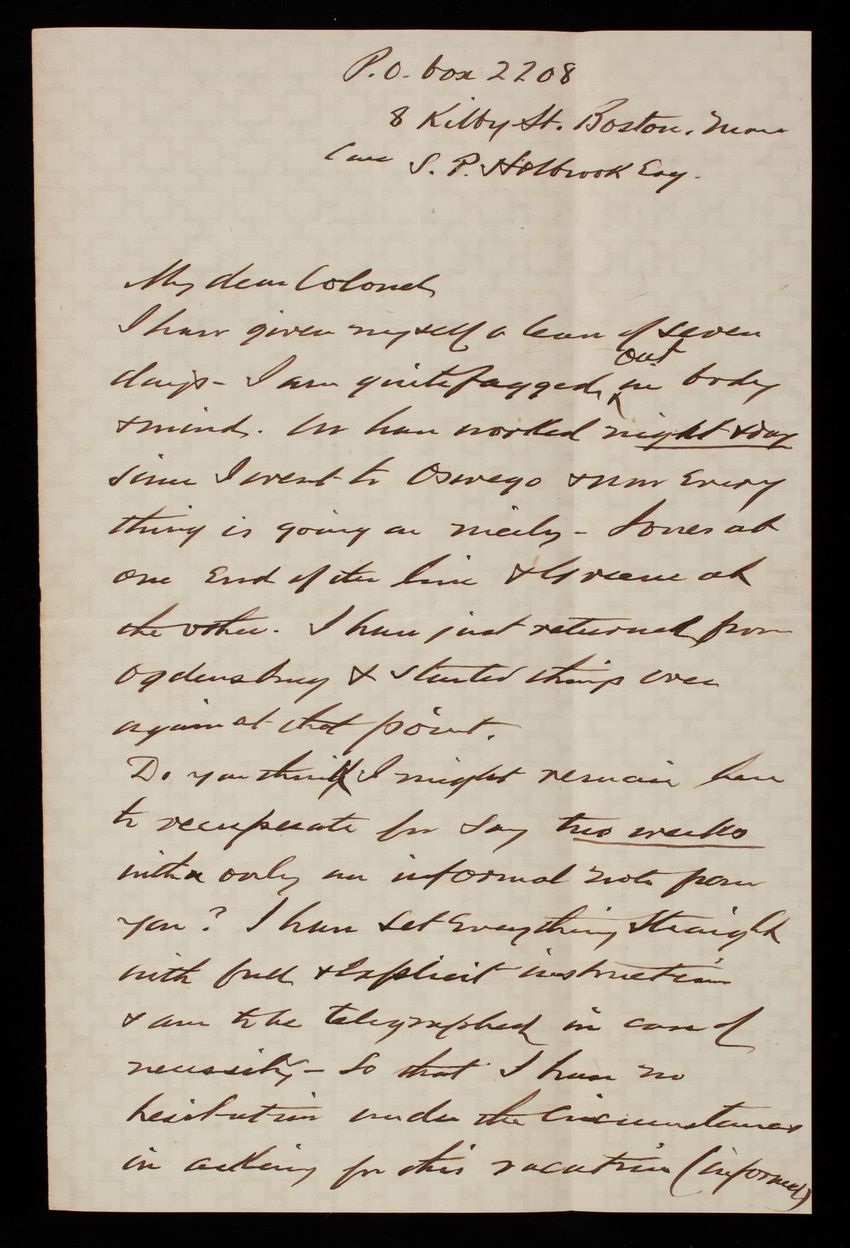 P.O. box 2208
8 Kilby St. Boston. Mass
Care S. P. Holbrook Esq.
My dear Colonel,
I have given myself a leave of seven
days - I am quite fagged out in body
& mind. We have worked night & day
since I went to Oswego & now Every
thing is going on nicely - Jones at
one End of the line & Greene at
the other. I have just returned from
Ogdensburg & started things over
again at that point.
Do you think I might remain here
to recuperate for say two weeks
with only an informal note from
you? I have set Everything straight
with full & Explicit instruction
& am to be telegraphed in case of
necessity - So that I have no
hesitation under the Circumstances
in asking for this vacation (informal)